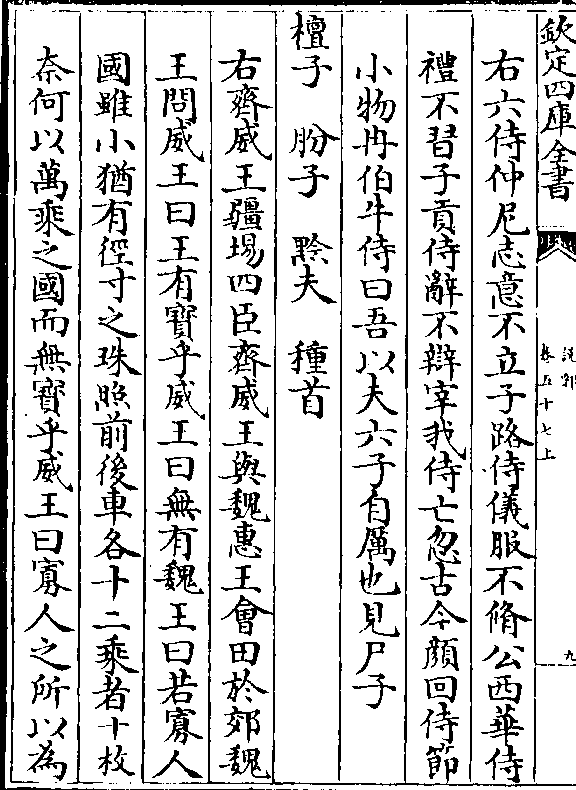 欽定四庫全書
說郛
卷五十七上
九
右六侍仲尼志意不立子路侍儀服不脩公西華侍
禮不習子貢侍辭不辯宰我侍亡忽古今顔回侍節
小物冉伯牛侍曰吾以夫六子自厲也見尸子
檀子 肦子 黔夫 種首
右齊威王疆埸四臣齊威王與魏惠王會田於郊魏
王問威王曰王有寳乎威王曰無有魏王曰若寡人
國雖小猶有徑寸之珠照前後車各十二乘者十枚
奈何以萬乘之國而無寳乎威王曰寡人之所以為